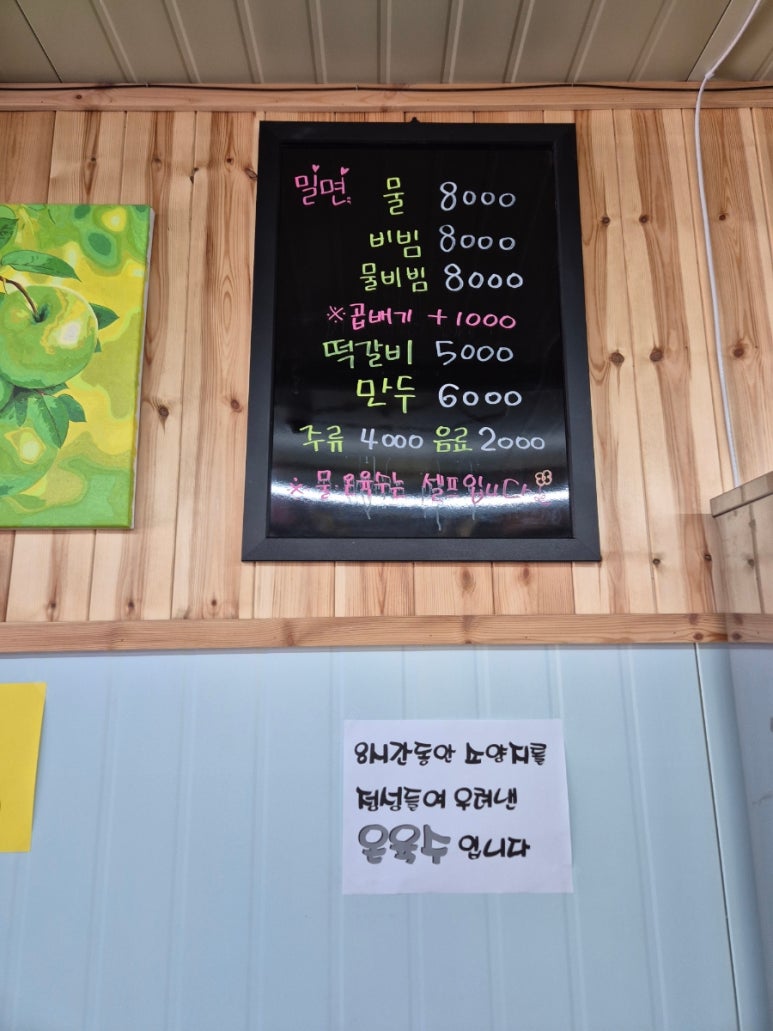 밀면 물 8000
비빔 8000
물비빔 8000
※곱배기 +1000
떡갈비 5000
만두 6000
주류 4000 음료 2000
※ 물·온육수는 셀프입니다
8시간동안 소양지를
정성들여 우려낸
온육수 입니다